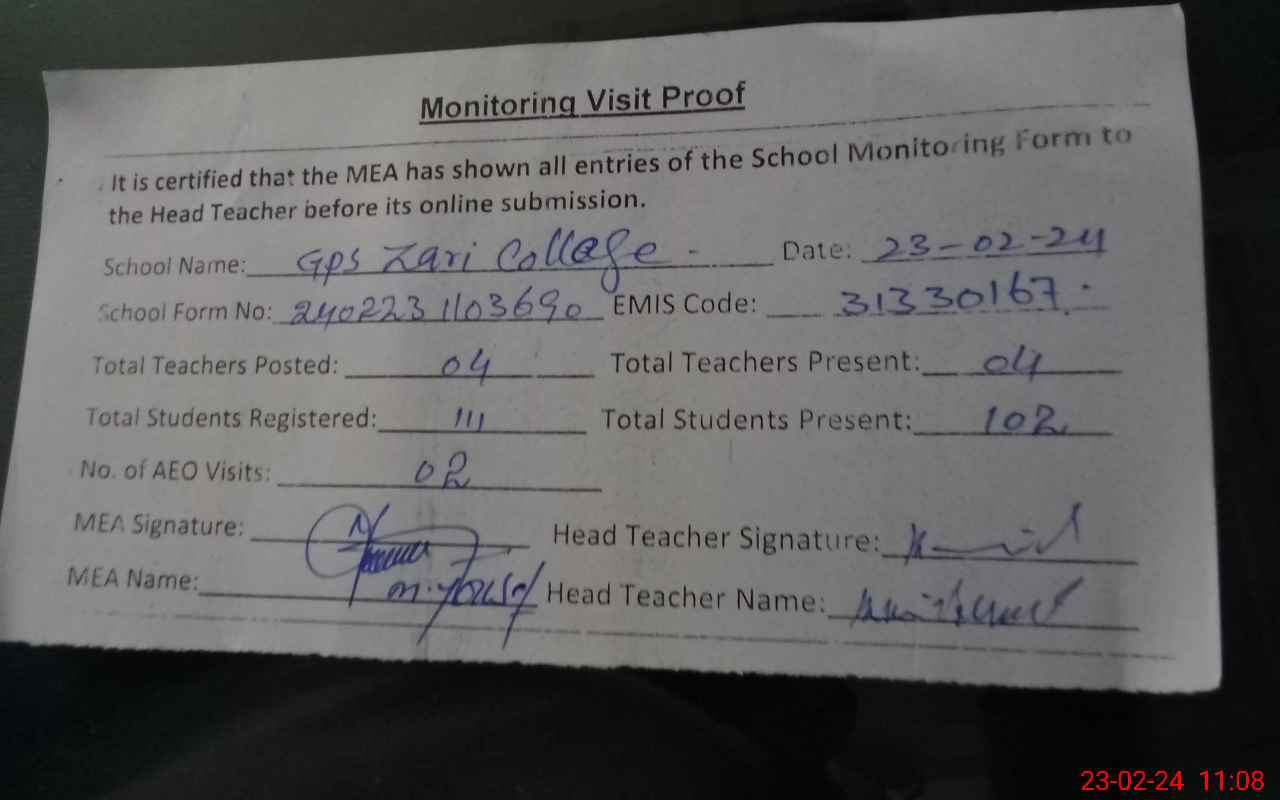 Monitoring Visit Proof
It is certified that the MEA has shown all entries of the School Monitoring Form to
the Head Teacher before its online submission.
School Name: GPS Zari College - Date: 23-02-24
School Form No: 2402231103690 EMIS Code: 31330167.
Total Teachers Posted: 04 Total Teachers Present: 04
Total Students Registered: 111 Total Students Present: 102
No. of AEO Visits: 02
MEA Signature: Head Teacher Signature:
MEA Name: M. Yousaf Head Teacher Name:
23-02-24 11:08